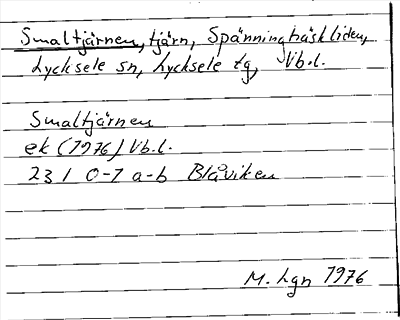 Smaltjärnen, tjärn, Spänningträskliden,
Lycksele sn, Lycksele tg, Vb.l.
Smaltjärnen
ek (1976) Vb.l.
23 I 0-1 a-b Blåviken
M. Lgn 1976